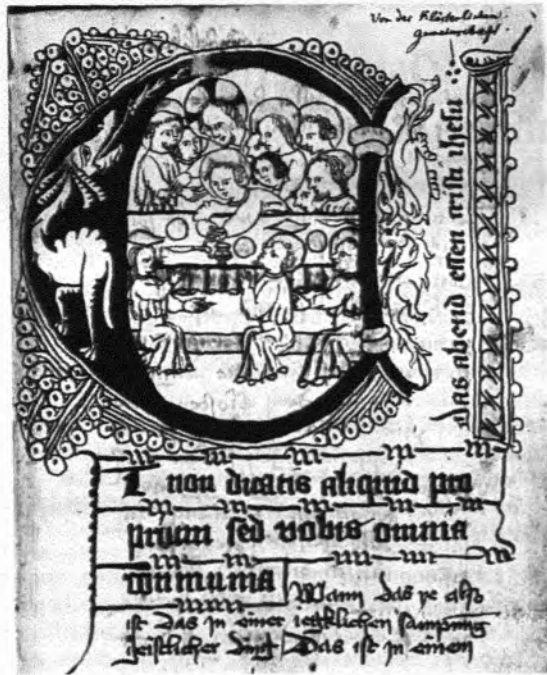 Von der Klösterlichen
gemeinschafft
das abend essen cristi ihesu
Et non dicatis aliquid pro
prium sed vobis omnia
communia Wann das ye
ist das in einer iegklichen samnung
geistlicher ding Das ist in einem